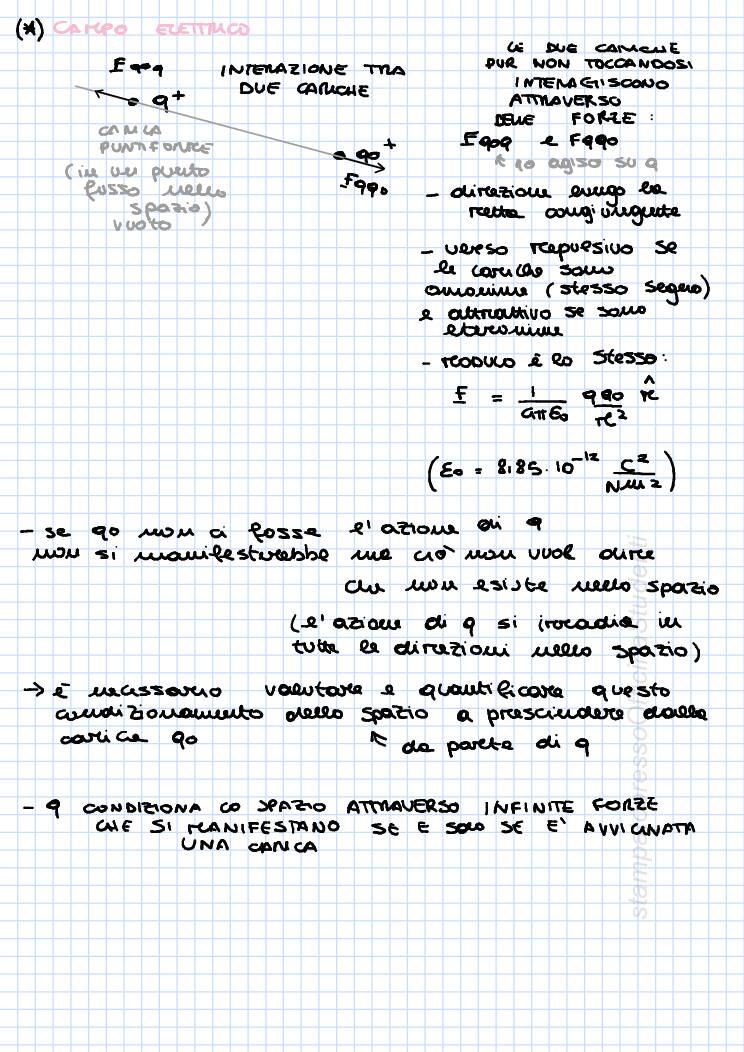 (*) CAMPO ELETTRICO
Fq0q
q+
CARICA
PUNTIFORME
(in un punto
fisso nello
spazio)
vuoto
INTERAZIONE TRA
DUE CARICHE
q0+
Fqq0
LE DUE CARICHE
PUR NON TOCCANDOSI
INTERAGISCONO
ATTRAVERSO
DELLE FORZE:
Fq0q e Fqq0
↑ q0 agisc su q
- direzione lungo la
retta congiungente
- verso repulsivo se
le cariche sono
omonime (stesso segno)
e attrattivo se sono
eteronime
- MODULO è lo stesso:
F = 1/4πε0 qq0/r² r̂
(ε0 = 8.85 · 10⁻¹² C²/Nm²)
- se q0 non ci fosse l'azione di q
non si manifesterebbe ma ciò non vuol dire
che non esiste nello spazio
(l'azione di q si irradia in
tutte le direzioni nello spazio)
→ è necessario valutare e quantificare questo
condizionamento dello spazio a prescindere dalla
carica q0 ↖ da parte di q
- q CONDIZIONA LO SPAZIO ATTRAVERSO INFINITE FORZE
CHE SI MANIFESTANO SE E SOLO SE E' AVVICINATA
UNA CARICA